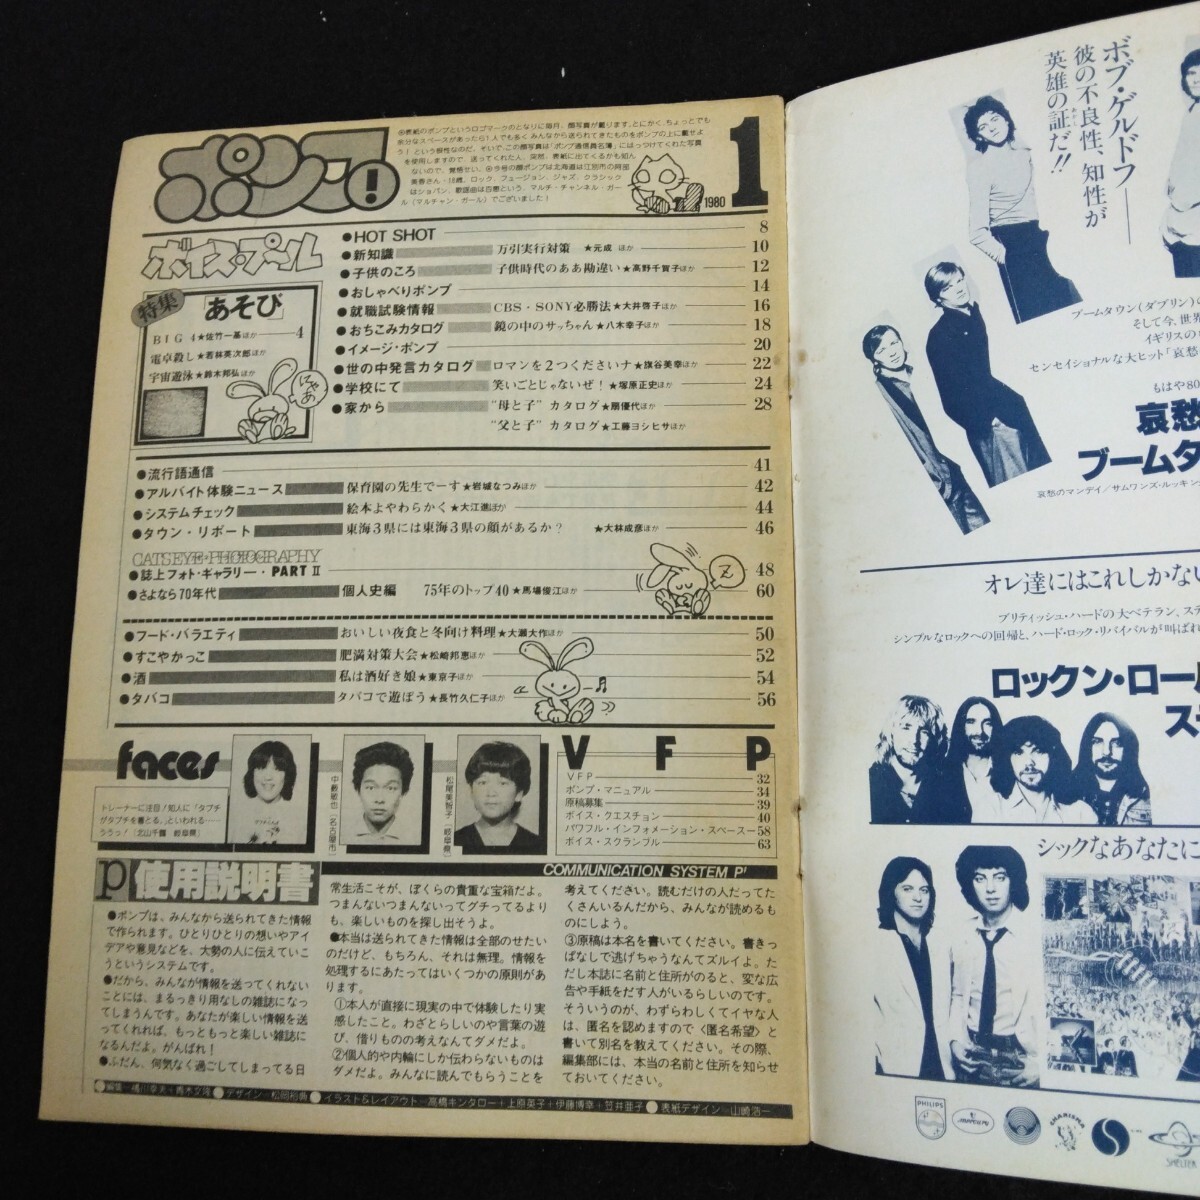 ポンプ!
1
1980
ボイス・プール
特集
「あそび」
BIG 4★佐竹一基ほか 4
電卓殺し★若林英次郎ほか
宇宙遊泳★鈴木邦弘ほか
にゃあ
●HOT SHOT 8
●新知識 万引実行対策 ★元成 ほか 10
●子供のころ 子供時代のああ勘違い★高野千賀子ほか 12
●おしゃべりポンプ 14
●就職試験情報 CBS・SONY必勝法★大井啓子ほか 16
●おちこみカタログ 鏡の中のサッちゃん★八木幸子ほか 18
●イメージ・ポンプ 20
●世の中発言カタログ ロマンを2つくださいナ★旗谷美幸ほか 22
●学校にて 笑いごとじゃないぜ!★塚原正史ほか 24
●家から "母と子" カタログ★扇優代ほか 28
"父と子" カタログ★工藤ヨシヒサほか
●流行語通信 41
●アルバイト体験ニュース 保育園の先生でーす★岩城なつみほか 42
●システムチェック 絵本よやわらかく★大江進ほか 44
●タウン・リポート 東海3県には東海3県の顔があるか? ★大林成彦ほか 46
CATS EYE・PHOTOGRAPHY
●誌上フォト・ギャラリー・PART II 48
●さよなら70年代 個人史編 75年のトップ40★馬場俊江ほか 60
Z
●フード・バラエティ おいしい夜食と冬向け料理★大瀬大作ほか 50
●すこやかっこ 肥満対策大会★松崎邦恵ほか 52
●酒 私は酒好き娘★東京子ほか 54
●タバコ タバコで遊ぼう★長竹久仁子ほか 56
faces
トレーナーに注目!知人に「タブチ
がタブチを着とる。」といわれる……
ううっ!〔北山千鶴 岐阜県〕
V F P
VFP 32
ポンプ・マニュアル 34
原稿募集 39
ボイス・クエスチョン 40
パワフル・インフォメーション・スペース 58
ボイス・スクランブル 63
P 使用説明書
COMMUNICATION SYSTEM P!
●ポンプは、みんなから送られてきた情報
で作られます。ひとりひとりの想いやアイ
デアや意見などを、大勢の人に伝えていこ
うというシステムです。
●だから、みんなが情報を送ってくれない
ことには、まるっきり用なしの雑誌になっ
てしまうんです。あなたが楽しい情報を送
ってくれれば、もっともっと楽しい雑誌に
なるんだよ。がんばれ!
●ふだん、何気なく過ごしてしまってる日
常生活こそが、ぼくらの貴重な宝箱だよ。
つまんないつまんないってグチってるより
も、楽しいものを探し出そうよ。
●本当は送られてきた情報は全部のせたい
のだけど、もちろん、それは無理。情報を
処理するにあたってはいくつかの原則があ
ります。
①本人が直接に現実の中で体験したり実
感したこと。わざとらしいのや言葉の遊
び、借りものの考えなんてダメだよ。
②個人的や内輪にしか伝わらないものは
ダメだよ。みんなに読んでもらうことを
考えてください。読むだけの人だってた
くさんいるんだから、みんなが読めるも
のにしよう。
③原稿は本名を書いてください。書きっ
ぱなしで逃げちゃうなんてズルイよ。た
だし本誌に名前と住所がのると、変な広
告や手紙をだす人がいるらしいのです。
そういうのが、わずらわしくてイヤな人
は、匿名を認めますので〈匿名希望〉と
書いて別名を教えてください。その際、
編集部には、本当の名前と住所を知らせ
ておいてください。
ボブ・ゲルドフ——
彼の不良性、知性が
英雄の証だ!!
ブームタウン(ダブリン)の
そして今、世界
イギリスの
センセイショナルな大ヒット「哀愁
もはや80
哀愁
ブームタ
哀愁のマンデイ/サムワンズ・ルッキン
オレ達にはこれしかない
ブリティッシュ・ハードの大ベテラン、ステ
シンプルなロックへの回帰と、ハード・ロック・リバイバルが叫ばれ
ロックン・ロール
ス
シックなあなたに
PHILIPS
mercury
CHARISMA
SHELTER